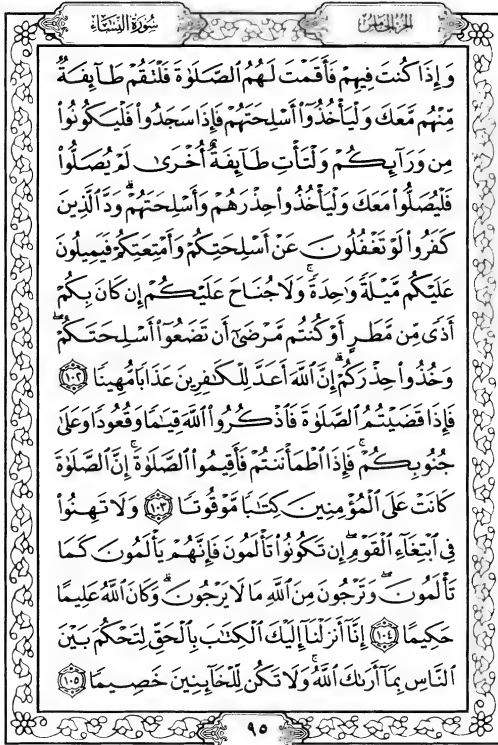 الجزء الخامس
سورة النساء
وَإِذَا كُنتَ فِيهِمْ فَأَقَمْتَ لَهُمُ ٱلصَّلَوٰةَ فَلْتَقُمْ طَآئِفَةٌ
مِّنْهُم مَّعَكَ وَلْيَأْخُذُوٓا۟ أَسْلِحَتَهُمْ فَإِذَا سَجَدُوا۟ فَلْيَكُونُوا۟
مِن وَرَآئِكُمْ وَلْتَأْتِ طَآئِفَةٌ أُخْرَىٰ لَمْ يُصَلُّوا۟
فَلْيُصَلُّوا۟ مَعَكَ وَلْيَأْخُذُوا۟ حِذْرَهُمْ وَأَسْلِحَتَهُمْ ۗ وَدَّ ٱلَّذِينَ
كَفَرُوا۟ لَوْ تَغْفُلُونَ عَنْ أَسْلِحَتِكُمْ وَأَمْتِعَتِكُمْ فَيَمِيلُونَ
عَلَيْكُم مَّيْلَةً وَٰحِدَةً ۚ وَلَا جُنَاحَ عَلَيْكُمْ إِن كَانَ بِكُمْ
أَذًى مِّن مَّطَرٍ أَوْ كُنتُم مَّرْضَىٰٓ أَن تَضَعُوٓا۟ أَسْلِحَتَكُمْ ۖ
وَخُذُوا۟ حِذْرَكُمْ ۗ إِنَّ ٱللَّهَ أَعَدَّ لِلْكَـٰفِرِينَ عَذَابًا مُّهِينًا ١٠٢
فَإِذَا قَضَيْتُمُ ٱلصَّلَوٰةَ فَٱذْكُرُوا۟ ٱللَّهَ قِيَـٰمًا وَقُعُودًا وَعَلَىٰ
جُنُوبِكُمْ ۚ فَإِذَا ٱطْمَأْنَنتُمْ فَأَقِيمُوا۟ ٱلصَّلَوٰةَ ۚ إِنَّ ٱلصَّلَوٰةَ
كَانَتْ عَلَى ٱلْمُؤْمِنِينَ كِتَـٰبًا مَّوْقُوتًا ١٠٣ وَلَا تَهِنُوا۟
فِى ٱبْتِغَآءِ ٱلْقَوْمِ ۖ إِن تَكُونُوا۟ تَأْلَمُونَ فَإِنَّهُمْ يَأْلَمُونَ كَمَا
تَأْلَمُونَ ۖ وَتَرْجُونَ مِنَ ٱللَّهِ مَا لَا يَرْجُونَ ۗ وَكَانَ ٱللَّهُ عَلِيمًا
حَكِيمًا ١٠٤ إِنَّآ أَنزَلْنَآ إِلَيْكَ ٱلْكِتَـٰبَ بِٱلْحَقِّ لِتَحْكُمَ بَيْنَ
ٱلنَّاسِ بِمَآ أَرَىٰكَ ٱللَّهُ ۚ وَلَا تَكُن لِّلْخَآئِنِينَ خَصِيمًا ١٠٥
٩٥